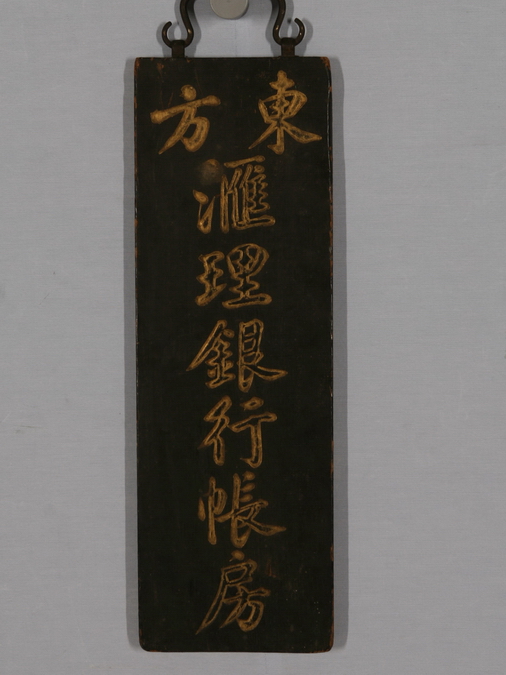 東方
滙理銀行帳房